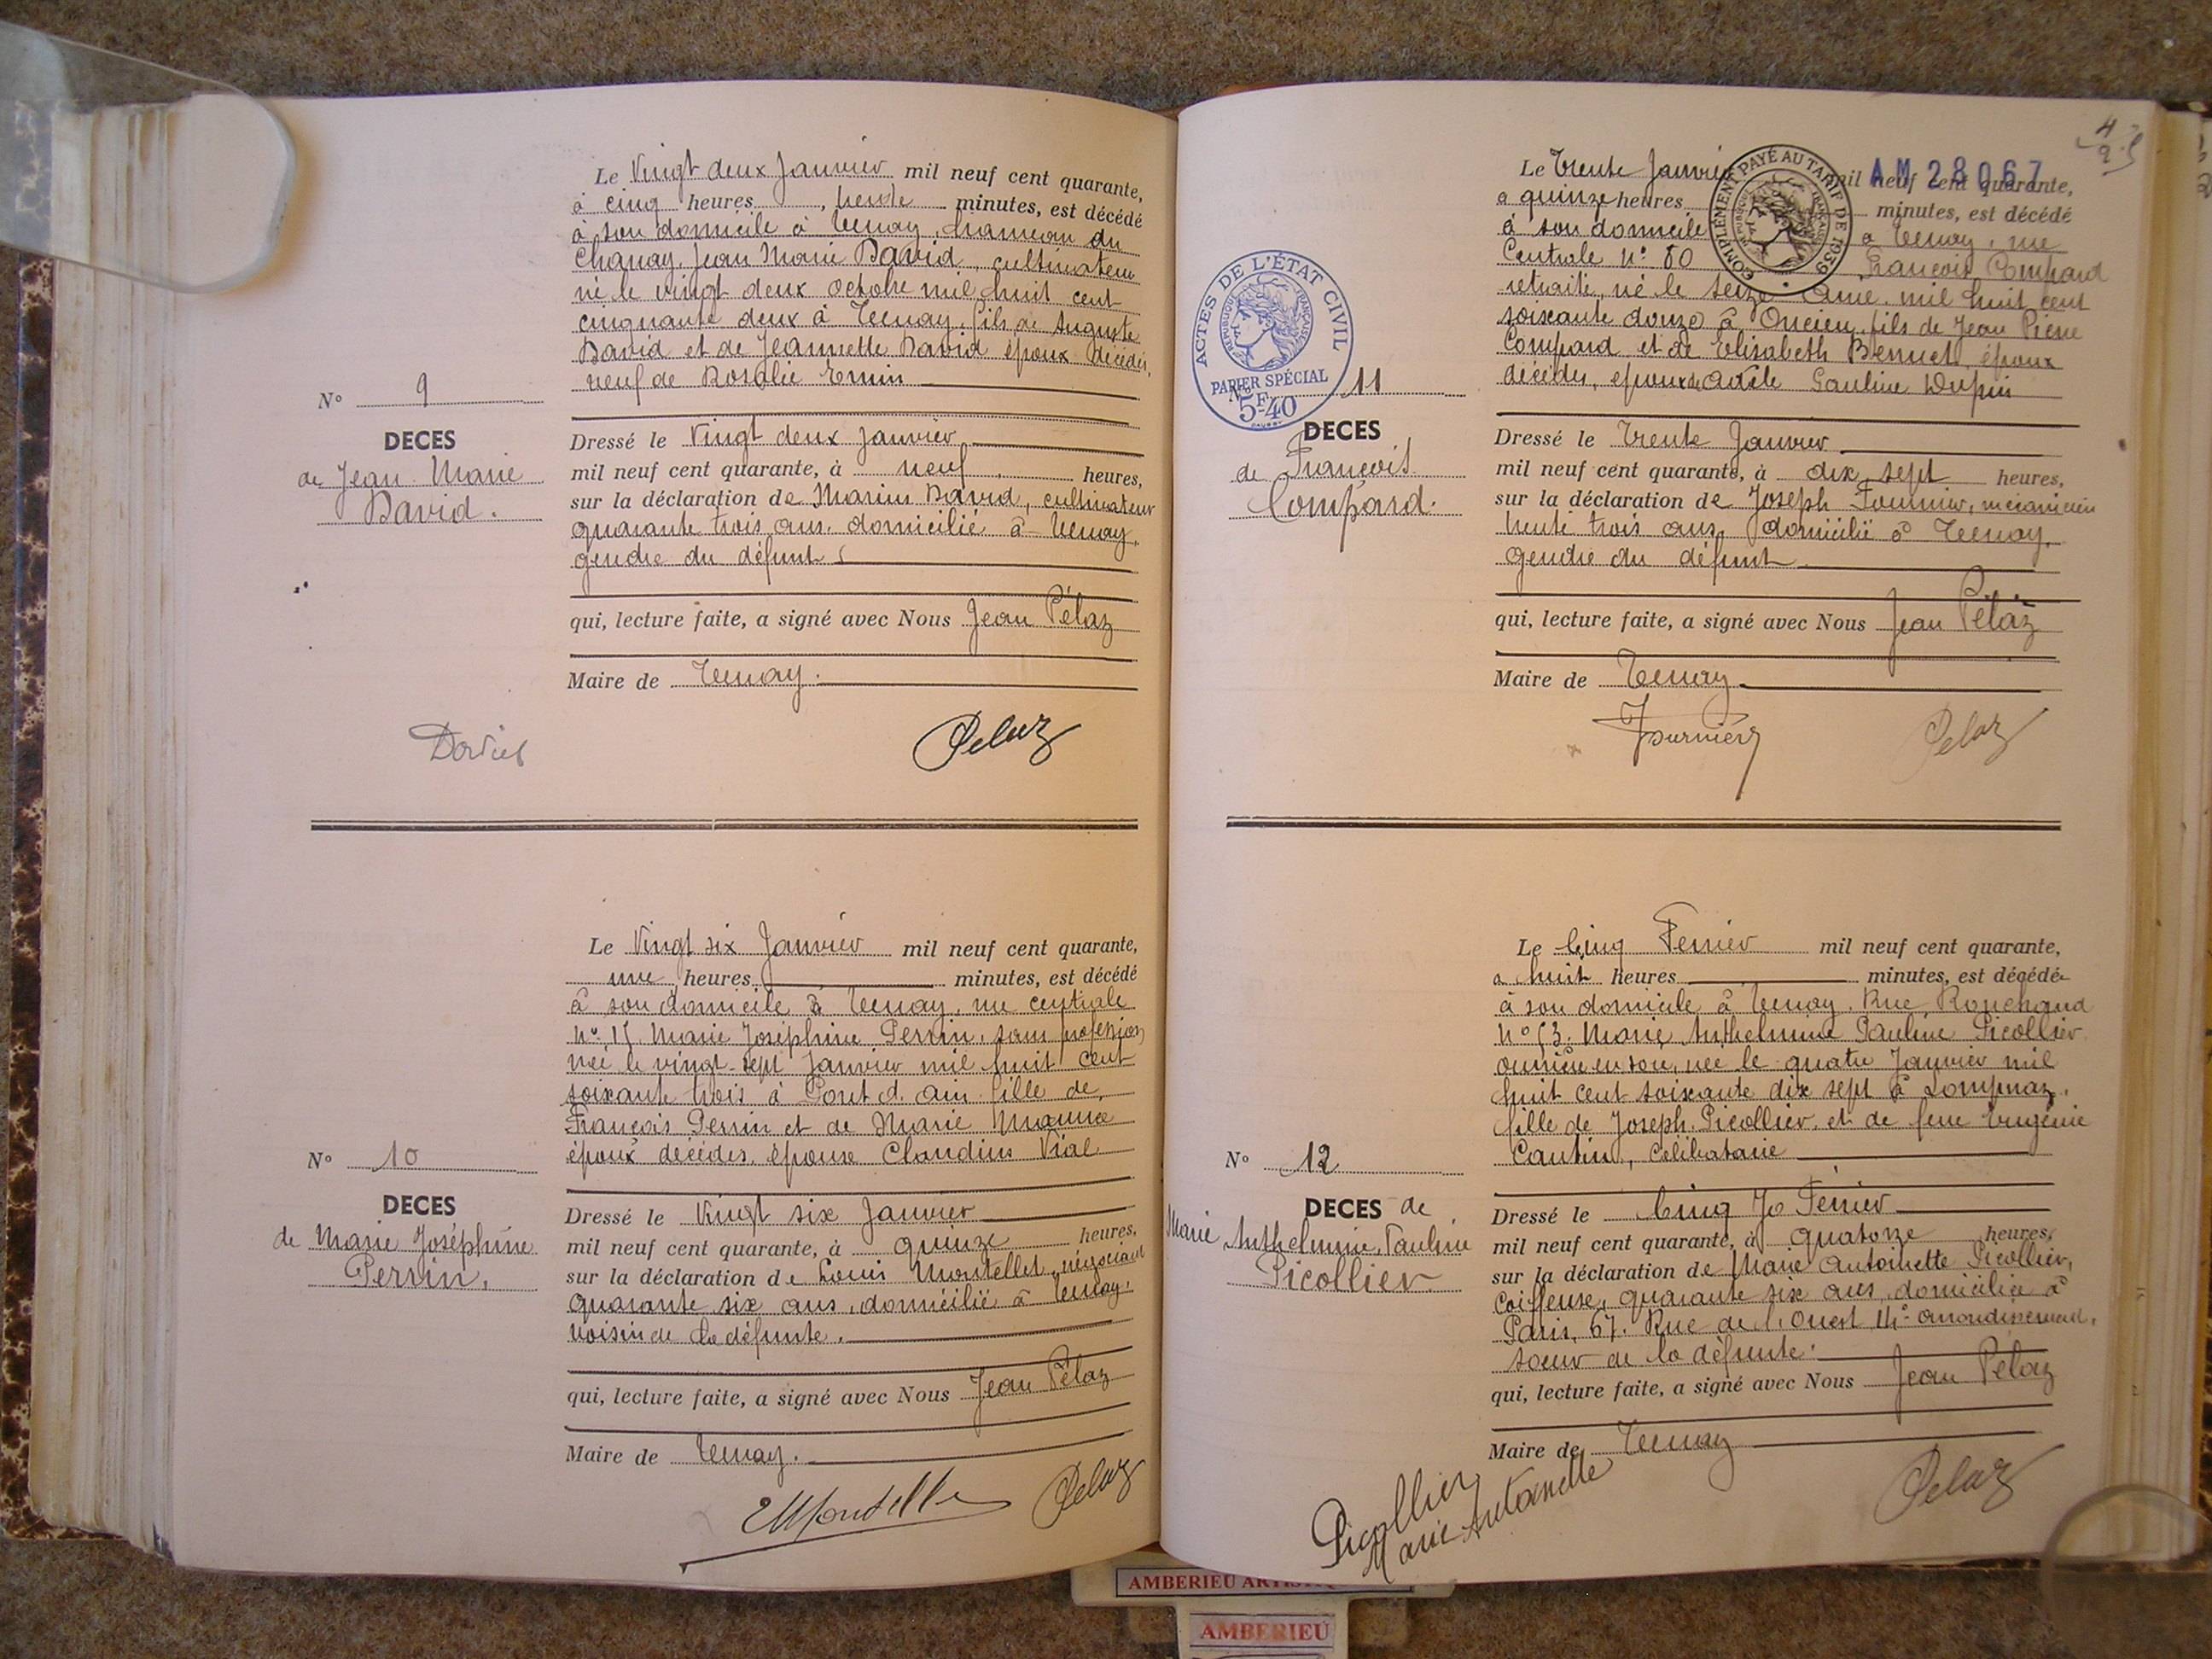 Le Vingt deux Janvier mil neuf cent quarante,
à cinq heures, trente minutes, est décédé
à son domicile à Tenay, hameau du
Chanay, Jean Marie David, cultivateur
né le vingt deux octobre mil huit cent
cinquante deux à Tenay, fils de Auguste
David et de Jeannette David époux décédés,
veuf de Rosalie Emin
N° 9
DECES
de Jean Marie
David.
Dressé le Vingt deux Janvier
mil neuf cent quarante, à neuf heures,
sur la déclaration de Marius David, cultivateur
quarante trois ans, domicilié à Tenay,
gendre du défunt
qui, lecture faite, a signé avec Nous Jean Pélaz
Maire de Tenay.
David Pelaz
Le Vingt six Janvier mil neuf cent quarante,
une heures minutes, est décédé
à son domicile à Tenay, rue centrale
N° 15, Marie Joséphine Perrin, sans profession
née le vingt-sept Janvier mil huit cent
soixante trois à Poncet d'ain fille de
François Perrin et de Marie
époux décédés, épouse Claudius Vial
N° 10
DECES
de Marie Joséphine
Perrin.
Dressé le Vingt six Janvier
mil neuf cent quarante, à quinze heures,
sur la déclaration de Louis Montellet, négociant
quarante six ans, domicilié à Tenay,
voisin de la défunte.
qui, lecture faite, a signé avec Nous Jean Pélaz
Maire de Tenay.
Pelaz
4
Le Trente Janvier mil neuf cent quarante,
AM 28067
à quinze heures minutes, est décédé
à son domicile à Tenay, rue
Centrale N° 80 François Compard
retraité, né le seize mil huit cent
soixante douze à Oncieu, fils de Jean Pierre
Compard et de Elisabeth Bennet, époux
décédés, époux de Pauline Dupin
COMPLÉMENT PAYÉ AU TARIF DE 1939
RÉPUBLIQUE FRANÇAISE
ACTES DE L'ÉTAT CIVIL
RÉPUBLIQUE FRANÇAISE
PAPIER SPÉCIAL
5F-40
N° 11
DECES
de François
Compard.
Dressé le Trente Janvier
mil neuf cent quarante, à dix sept heures,
sur la déclaration de Joseph Fournier, mécanicien
trente trois ans, domicilié à Tenay,
gendre du défunt
qui, lecture faite, a signé avec Nous Jean Pélaz
Maire de Tenay
Fournier Pelaz
Le Cinq Ferrier mil neuf cent quarante,
à huit heures minutes, est décédée
à son domicile à Tenay, Rue Rouchaud
N° 53, Marie Anthelmine Pauline Picollier
ouvrière en soie, née le quatre Janvier mil
huit cent soixante dix sept à Lompnaz,
fille de Joseph Picollier et de feue Eugénie
Cantin, célibataire
N° 12
DECES de
Marie Anthelmine Pauline
Picollier
Dressé le Cinq Ferrier
mil neuf cent quarante, à quatorze heures,
sur la déclaration de Marie Antoinette Picollier,
Coiffeuse, quarante six ans, domiciliée à
Paris, 67. Rue de l'Ouest 14e arrondissement,
soeur de la défunte.
qui, lecture faite, a signé avec Nous Jean Pélaz
Maire de Tenay
Picollier
Marie Antoinette
Pelaz
AMBERIEU
AMBERIEU